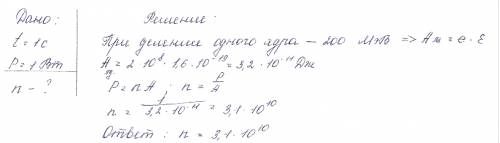 Дано: Решение:
t = 1с При деление одного ядра – 200 МэВ => Aя = e · ε
P = 1 Вт A = 2·10⁸ · 1,6·10⁻¹⁹ = 3,2·10⁻¹¹ Дж
n – ? P = nA ; n = P/A
n = 1/(3,2·10⁻¹¹) = 3,1·10¹⁰
Ответ: n = 3,1·10¹⁰